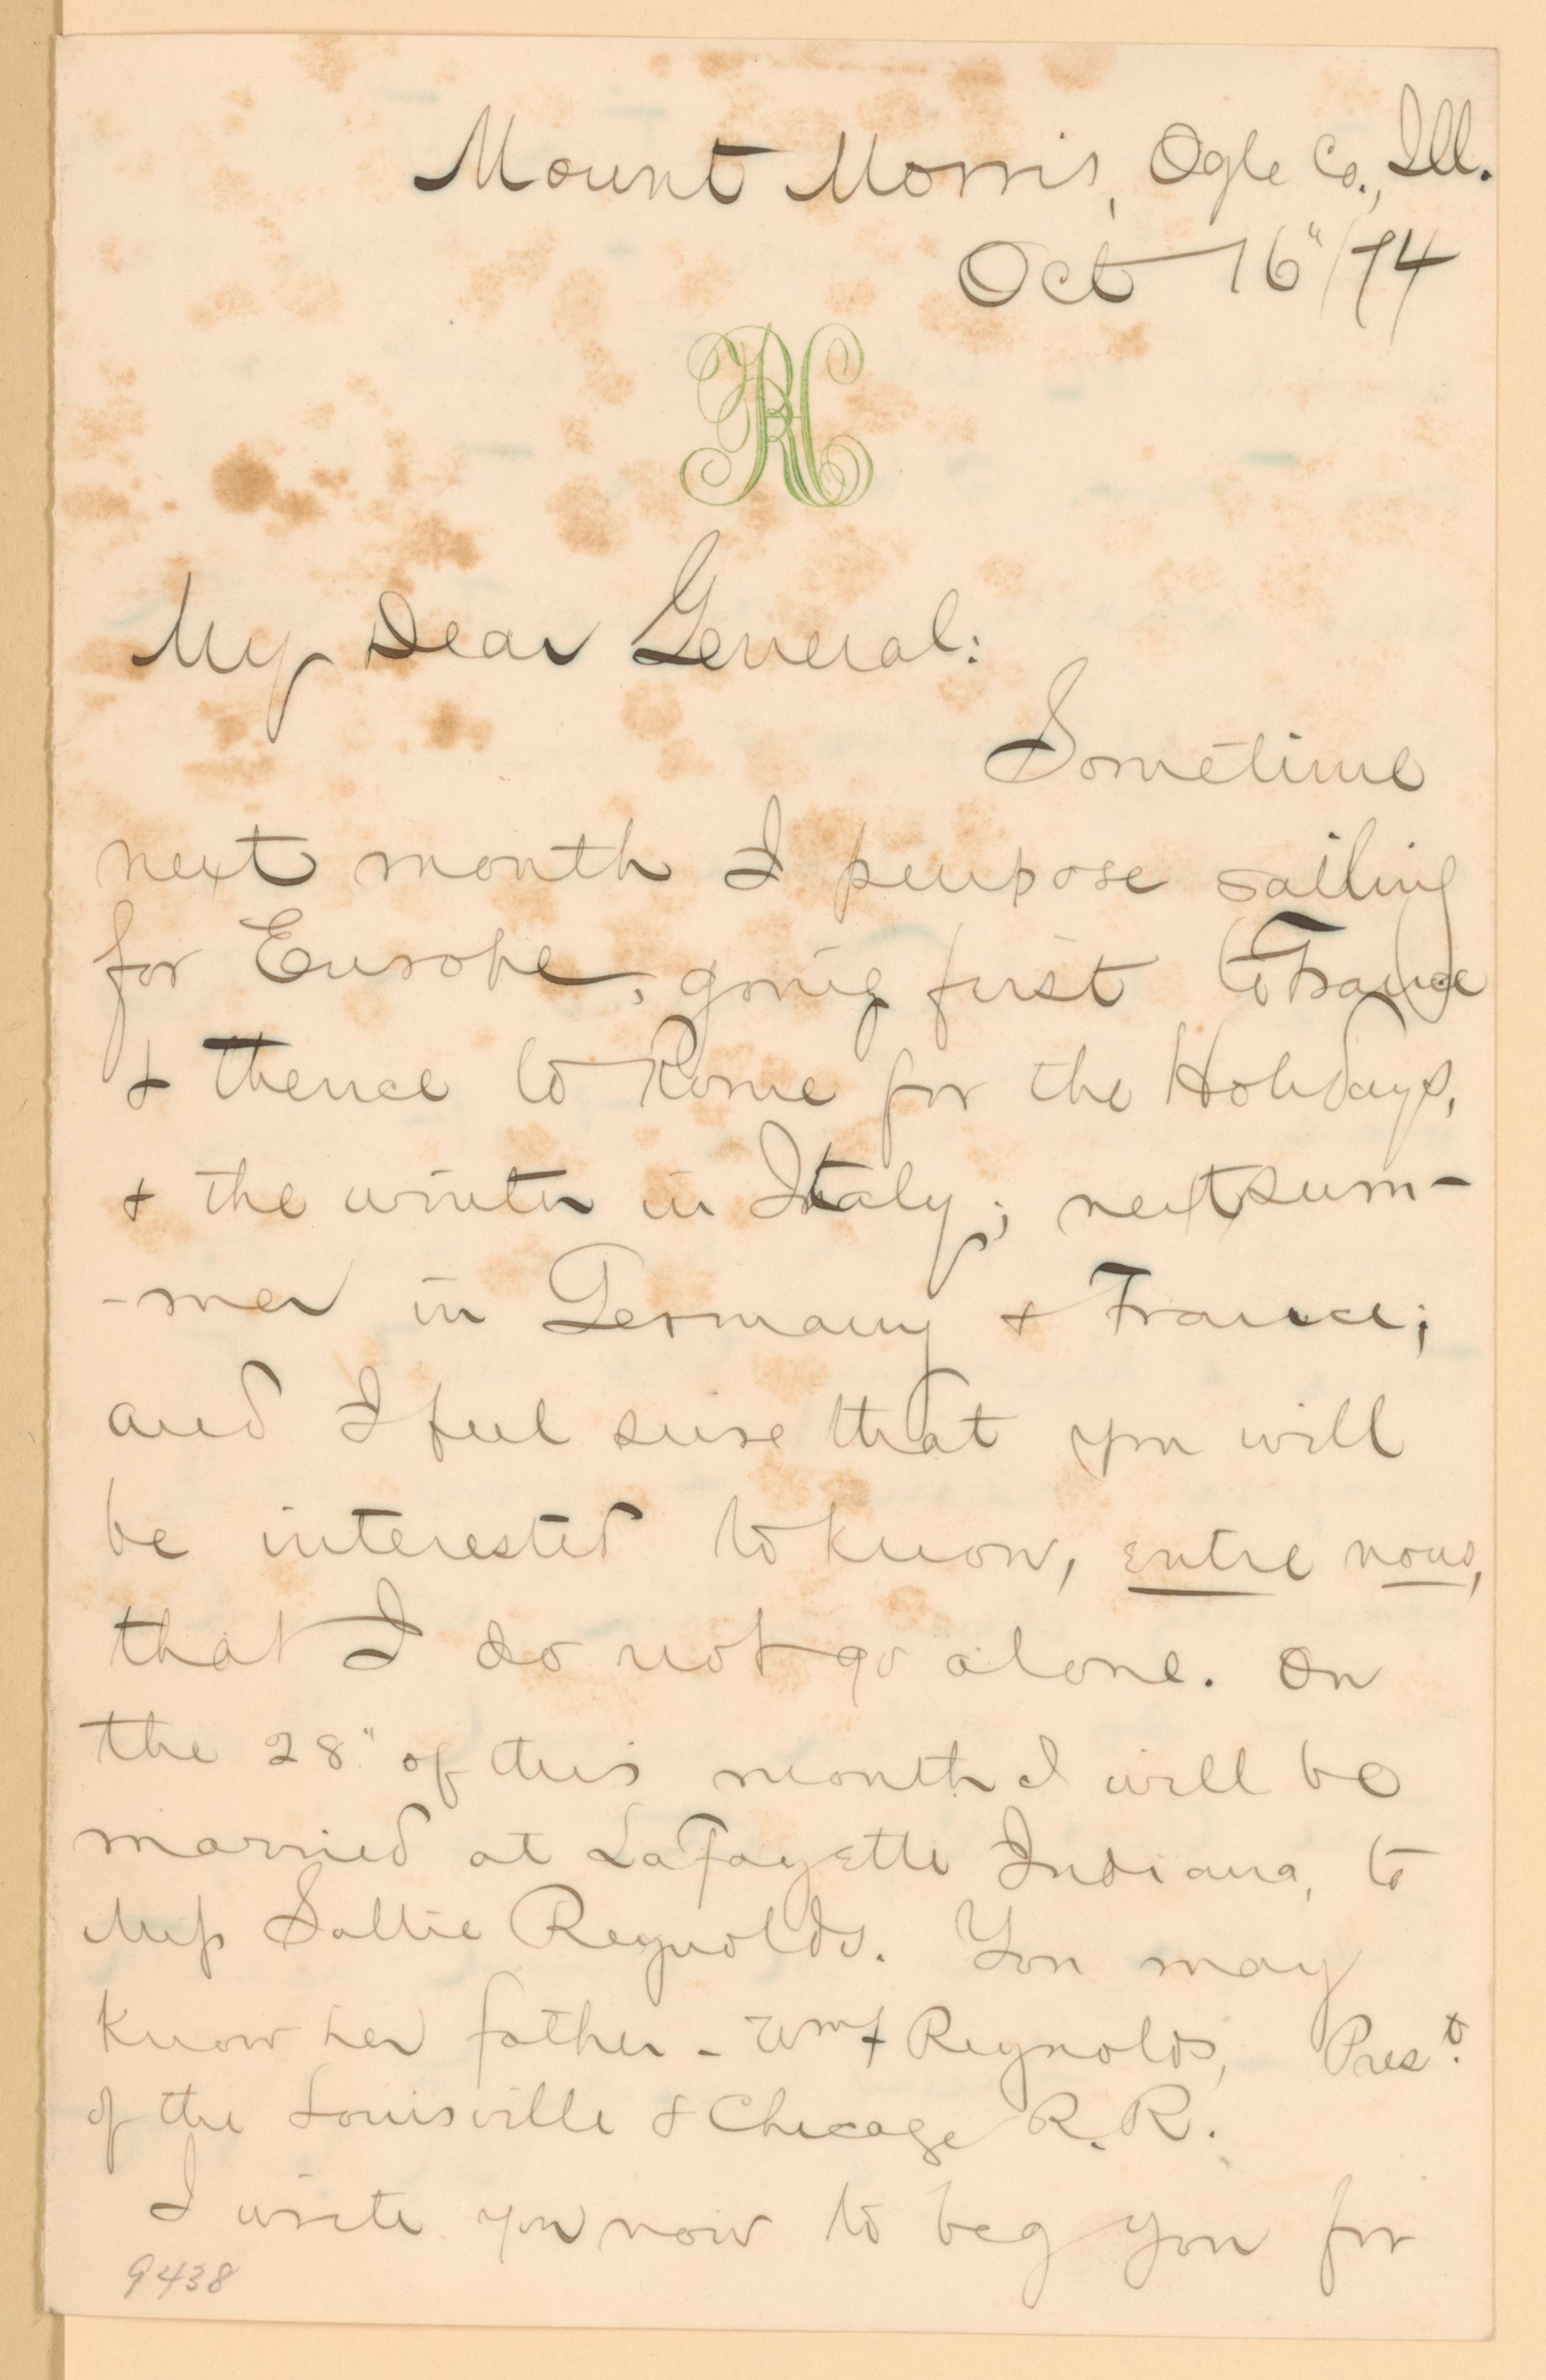 Mount Morris, Ogle Co., Ill.
Oct 16"/74
RH
My Dear General:
Sometime
next month I purpose sailing
for Europe, going first to France
& thence to Rome for the Holidays,
& the winter in Italy; next sum-
-mer in Germany & France;
and I feel sure that you will
be interested to know, entre nous,
that I do not go alone. On
the 28" of this month I will be
married at LaFayette Indiana, to
Miss Sallie Reynolds. You may
know her father - Wm Reynolds, Prest.
of the Louisville & Chicago R.R.
I write you now to beg you for
9438